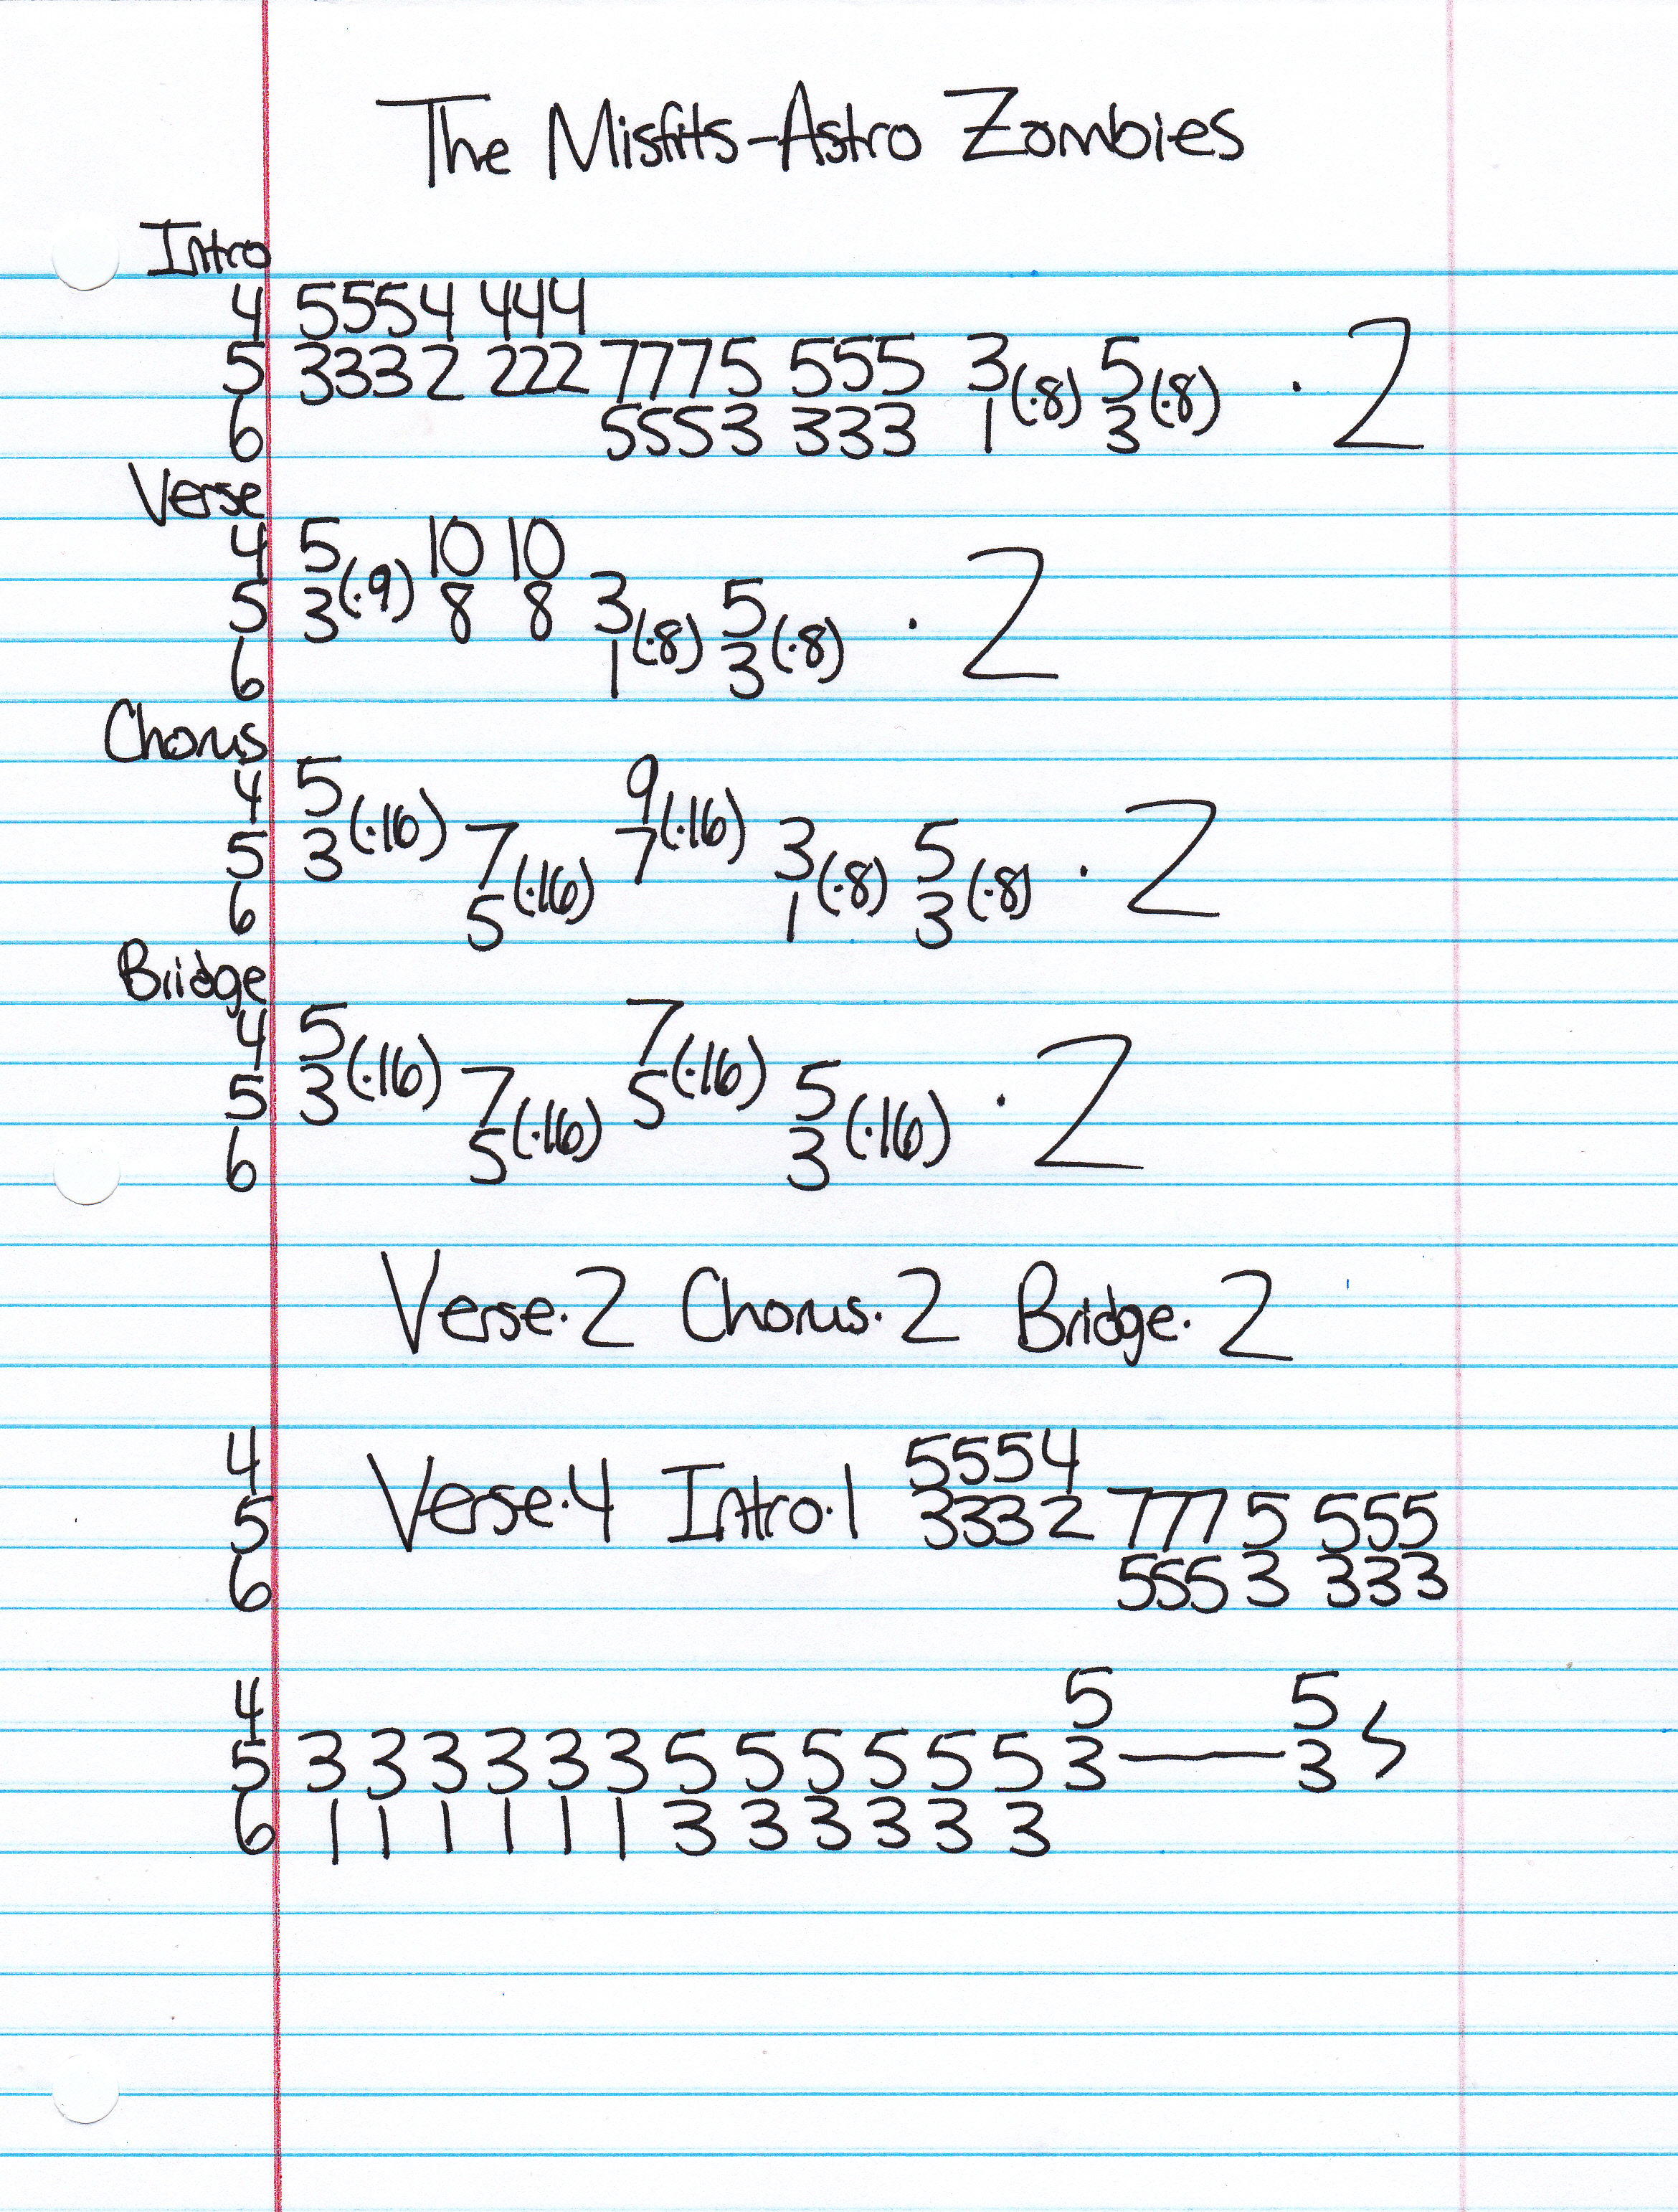 The Misfits-Astro Zombies
Intro
4 5554 444
5 3332 222 7775 555 3(·8) 5(·8) · 2
6 5553 333 1 3
Verse
4 5 10 10
5 3(·9) 8 8 3(·8) 5(·8) · 2
6 1 3
Chorus
4 5 9
5 3(·16) 7(·16) 7(·16) 3(·8) 5(·8) · 2
6 5 1 3
Bridge
4 5 7
5 3(·16) 7(·16) 5(·16) 5(·16) · 2
6 5 3
Verse·2 Chorus·2 Bridge·2
4 5554
5 Verse·4 Intro·1 3332 777 5 555
6 555 3 333
4 5 5
5 3 3 3 3 3 3 5 5 5 5 5 5 3 — 3 S
6 1 1 1 1 1 1 3 3 3 3 3 3